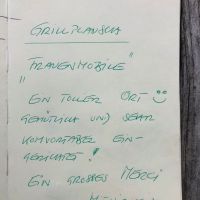 GRILLPLAUSCH
"FRAUENMOBILE"
EIN TOLLER ORT ☺
GEMÜTLICH UND SEHR
KOMFORTABEL EIN-
GERICHTET!
EIN GROSSES MERCI